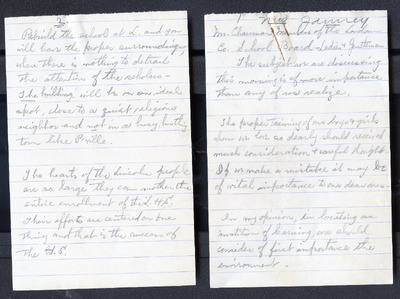 Mr Chairman, Members of the Loudoun
Co. School Board - Ladies & Gentlemen
The subject we are discussing
this morning is of more importance
than any of us realize.
The proper training of our boys & girls
whom we love so dearly should receive
much consideration & careful thought.
If we make a mistake it may be
of vital importance to our dear ones.
In my opinion, in locating an
institution of learning, we should
consider of first importance the
environment.
2
Rebuild the school at L. and you
will have the proper surroundings
where there is nothing to detract
the attention of the scholars -
The building will be on an ideal
spot, close to a quiet religious
neighbor and not in a busy, hustling
town like P.ville.
The hearts of the Lincoln people
are so large they can mother the
entire enrollment of this L.H.S.
Their efforts are centered on one
thing and that is the success of
the H.S.